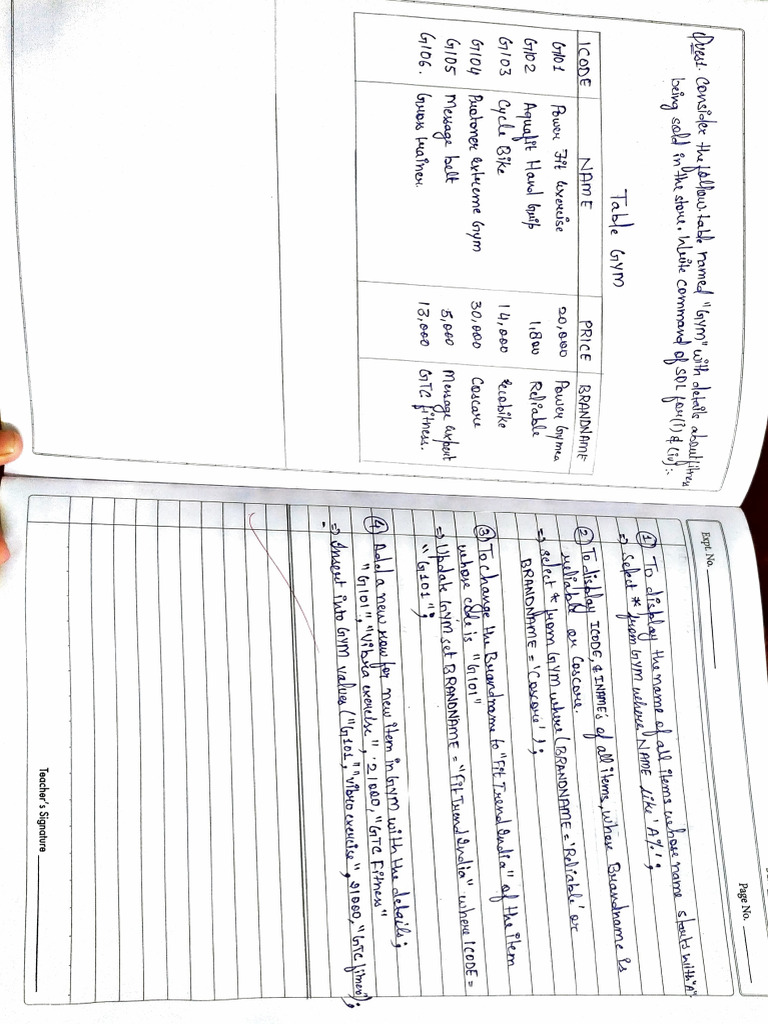 Ques: Consider the follow table named "GYM" with details about fitness
being sold in the store. Write command of SQL for (i) & (iv):-
Table GYM
ICODE NAME PRICE BRANDNAME
G101 Power Fit exercise 20,000 Power Gymea
G102 Aquafit Hand Grip 1,800 Reliable
G103 Cycle Bike 14,000 Ecobike
G104 Protoner extreme Gym 30,000 Coscore
G105 Message belt 5,000 Message expert
G106. Gross trainer 13,000 GTC fitness.
Expt. No.
Page No.
① To display the name of all items whose name starts with "A".
⇒ Select * from GYM where NAME like 'A%';
② To display ICODE, & INAME's of all items, where Brandname is
reliable or Coscore.
⇒ select * from GYM where (BRANDNAME = 'Reliable' or
BRANDNAME = 'Coscore');
③ To change the Brandname to "Fit Trend India" of the item
whose code is "G101"
⇒ Update GYM set BRANDNAME = "Fit Trend India" where ICODE =
"G101";
④ Add a new row for new item in GYM with the details;
"G101", "Vibra exercise", 21000, "GTC Fitness"
⇒ Insert into GYM values ("G101", "Vibro exercise", 21000, "GTC fitness");
Teacher's Signature